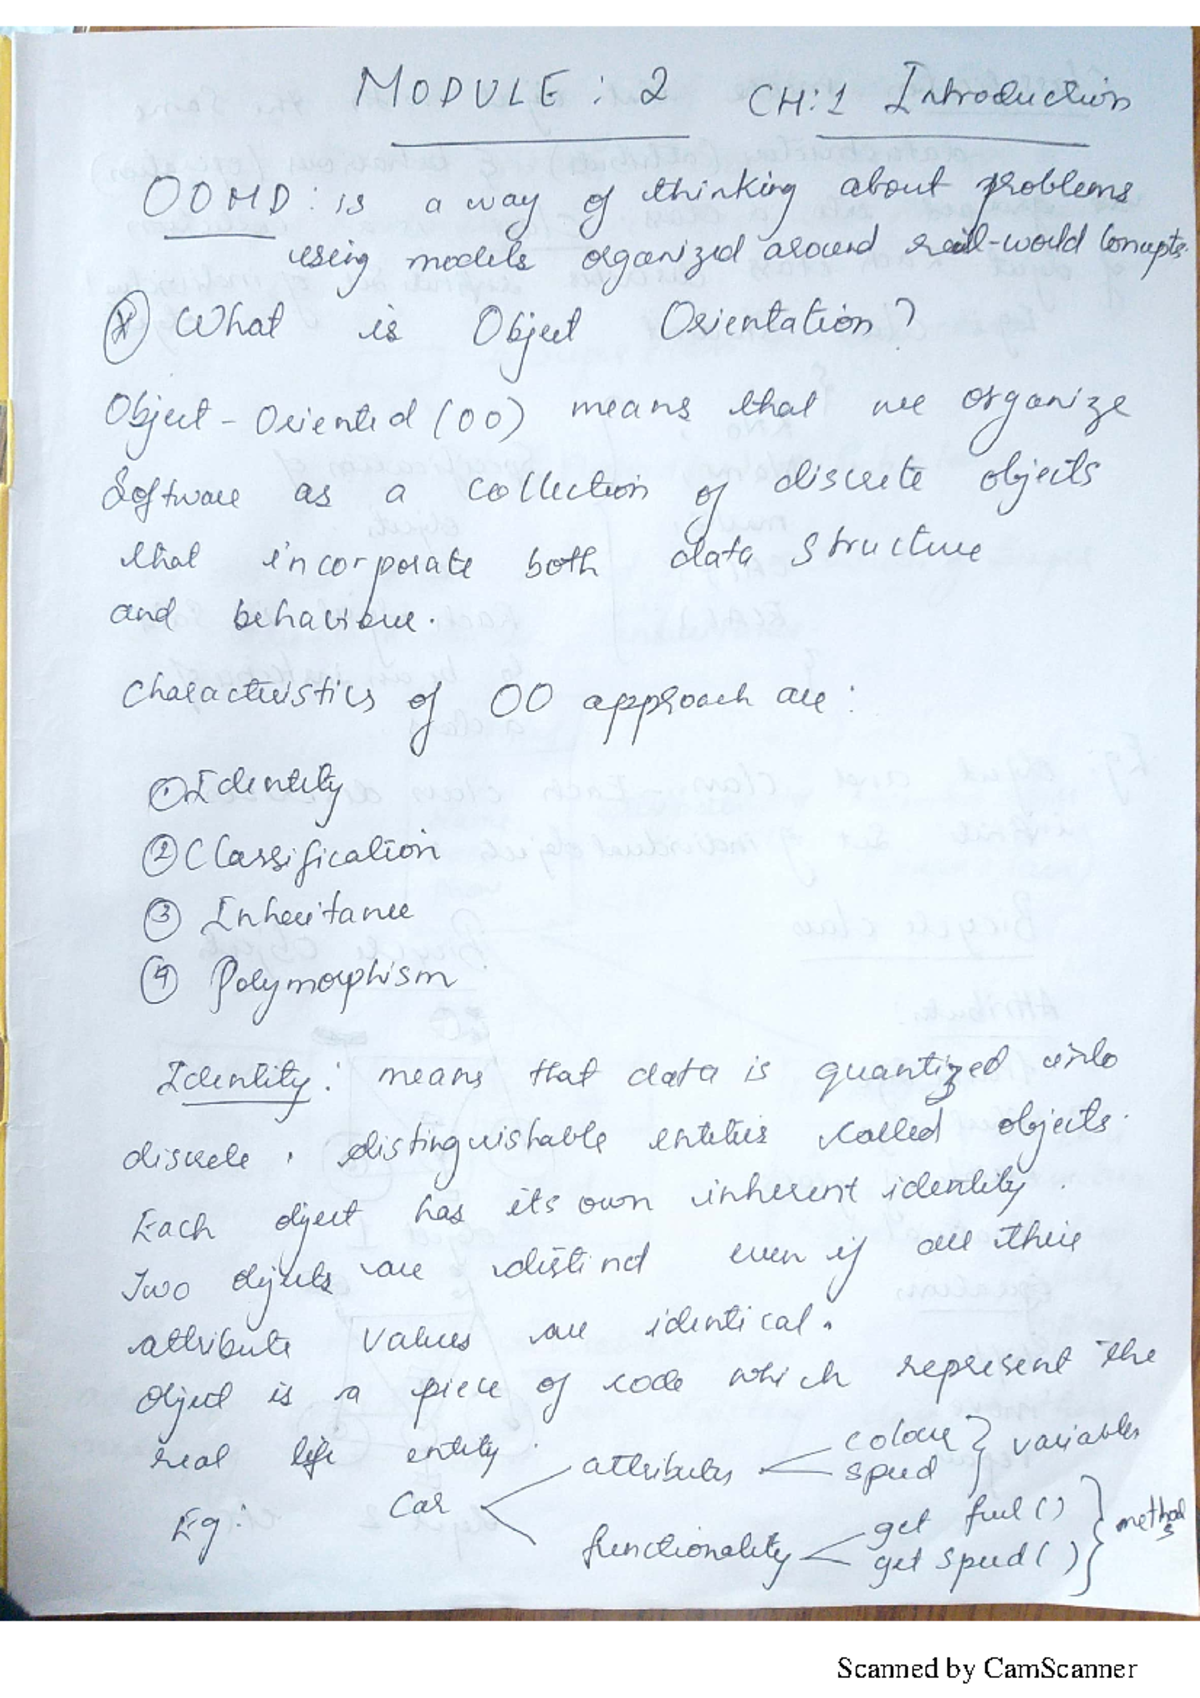 MODULE : 2 CH:1 Introduction
OOMD : is a way of thinking about problems
using models organized around real-world Concepts.
* What is Object Orientation?
Object-Oriented (OO) means that we organize
Software as a collection of discrete objects
that incorporate both data structure
and behaviour.
Characteristics of OO approach are :
① Identity
② Classification
③ Inheritance
④ Polymorphism
Identity : means that data is quantized into
discrete , distinguishable entities called objects.
Each object has its own inherent identity .
Two objects are distinct even if all their
attribute values are identical.
Object is a piece of code which represent the
real life entity .
Eg : Car attributes colour speed } variables
functionality get fuel () get speed () } methods
Scanned by CamScanner